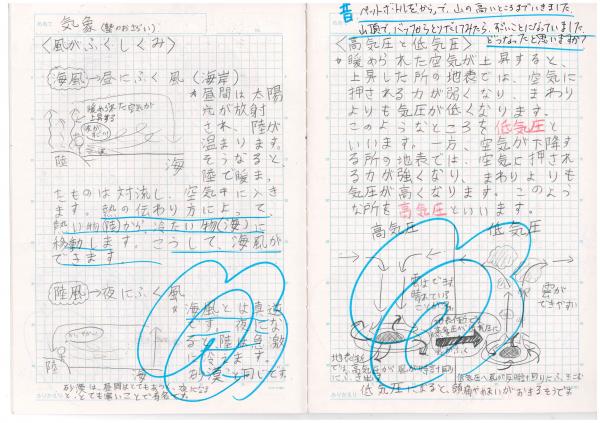 気象(塾のおさらい)
<風がふくしくみ>
海風→昼にふく風(海岸)
暖められた空気が
上昇する
陸
海
*昼間は太陽
光が放射
され、陸が
温まります。
そうなると、
陸で暖ま
たものは対流し、空気中に入き
ます。熱の伝わり方によって、
熱い物(陸)から、冷たい物(海)に
移動します。こうして、海風が
できます。
陸風→夜にふく風
陸
海
*海風とは真逆
です。夜にな
ると、陸は急激
に冷えます。
砂漠と同じです。
砂漠は、昼間はとてもあつく、夜になる
と、とても寒いことで有名です。
昔 ペットボトルをもって、山の高いところまでいきました。
山頂で、バッグからとりだしてみたら、すごいことになっていました。
どうなったと思いますか?
<高気圧と低気圧>
*暖められた空気が上昇すると、
上昇した所の地表では、空気に
押される力が弱くなり、まわり
よりも気圧が低くなります。
このようなところを低気圧と
いいます。一方、空気が下降す
る所の地表では、空気に押され
る力が強くなり、まわりよりも
気圧が高くなります。このよう
な所を高気圧といいます。
高気圧
低気圧
雲はできず、
晴れている
ことが
雲が
できやすい
地表付近
では、高気圧から風が時計回り
にふき出
低気圧へ風が反時計回りにふきこむ
低気圧によると、頭痛やめまいがおきるそうです。